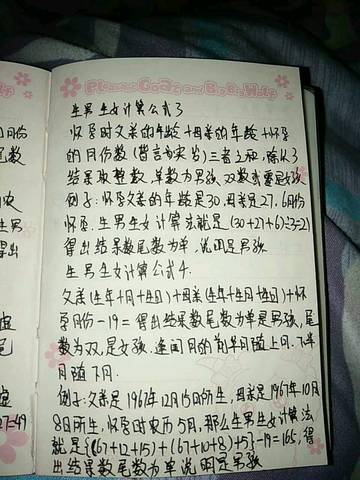 Pleasant Goat and Big Big Wolf
生男生女计算公式3
怀孕时父亲的年龄+母亲的年龄+怀孕
的月份数(皆言为实岁)三者之和,除以3
结果取整数,单数为男孩,双数为女孩
例子:怀孕父亲的年龄是30,母亲是27,6月份
怀孕.生男生女计算法就是(30+27+6)÷3=21
得出结果数尾数为单,说明是男孩
生男生女计算公式4.
父亲(生年+月+生日)+母亲(生年+生月+生日)+怀
孕月份-19=得出结果数尾数为单是男孩,尾
数为双,是女孩.逢闰月的前半月随上月.下半
月随下月.
例子:父亲是1967年12月15日所生,母亲是1967年10月
8日所生,怀孕时农历5月,那么生男生女计算法
就是{(67+12+15)+(67+10+8)+5}-19=165,得
出结果数尾数为单说明是男孩
月份
尾数
农
生男
得出
虚
尾
虚
27-49